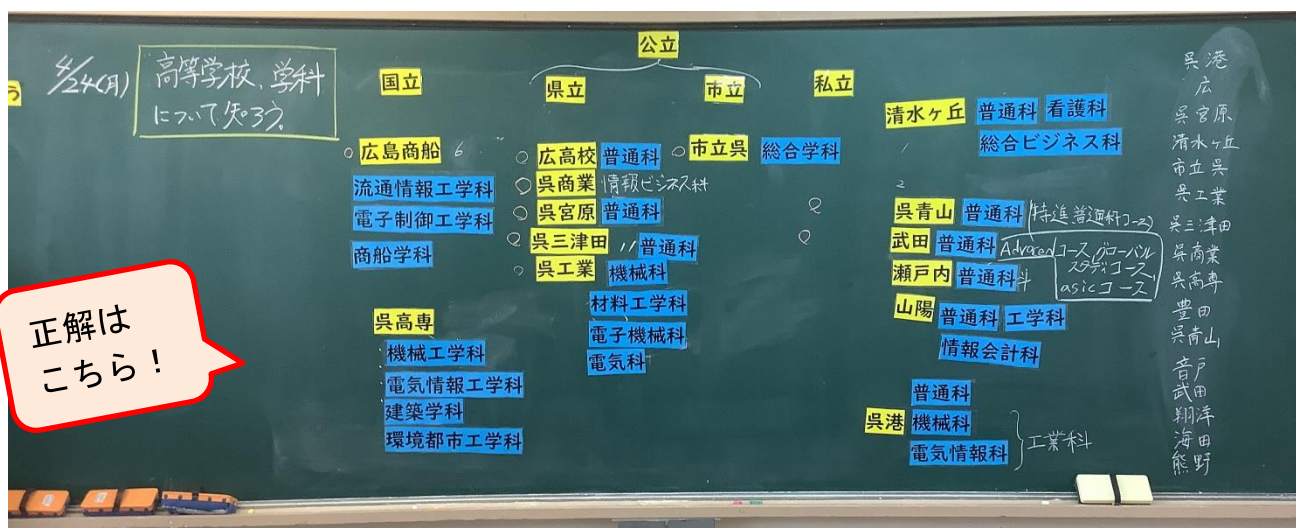 4/24(月)
高等学校、学科
について知ろう。
正解は
こちら！
国立
広島商船
流通情報工学科
電子制御工学科
商船学科
呉高専
機械工学科
電気情報工学科
建築学科
環境都市工学科
公立
県立 市立
広高校 普通科
呉商業 情報ビジネス科
呉宮原 普通科
呉三津田 〃 普通科
呉工業 機械科
材料工学科
電子機械科
電気科
市立呉 総合学科
私立
清水ヶ丘 普通科 看護科
総合ビジネス科
呉青山 普通科 (特進 普通科コース)
武田 普通科 コース グローバル
スタディコース
asicコース
瀬戸内 普通科
山陽 普通科 工学科
情報会計科
呉港 普通科
機械科
電気情報科
工業科
呉港
広
呉宮原
清水ヶ丘
市立呉
呉工業
呉三津田
呉商業
呉高専
豊田
呉青山
音戸
武田
翔洋
海田
熊野